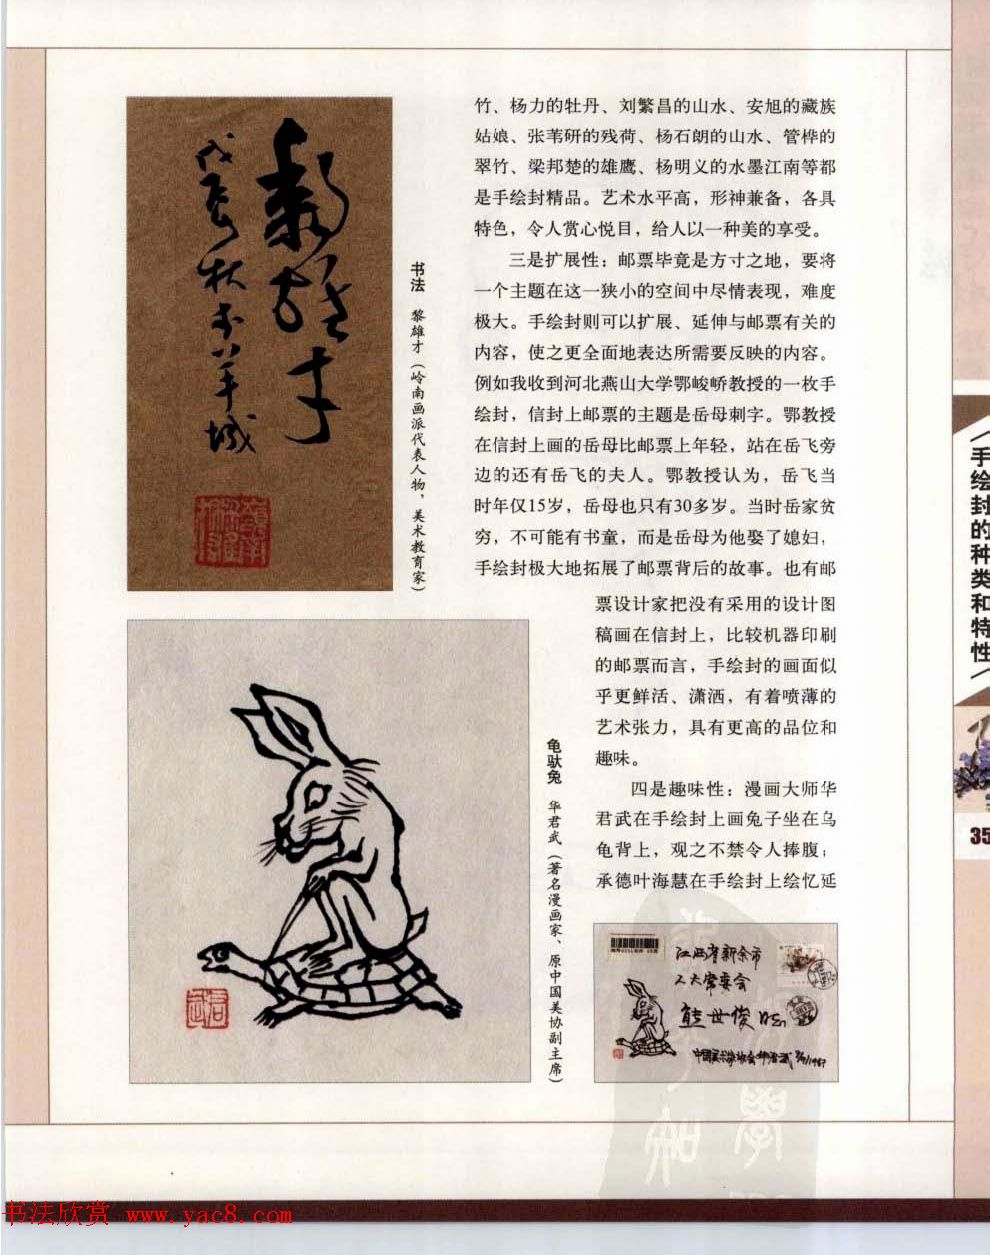 竹、杨力的牡丹、刘繁昌的山水、安旭的藏族
姑娘、张苇研的残荷、杨石朗的山水、管桦的
翠竹、梁邦楚的雄鹰、杨明义的水墨江南等都
是手绘封精品。艺术水平高，形神兼备，各具
特色，令人赏心悦目，给人以一种美的享受。
三是扩展性：邮票毕竟是方寸之地，要将
一个主题在这一狭小的空间中尽情表现，难度
极大。手绘封则可以扩展、延伸与邮票有关的
内容，使之更全面地表达所需要反映的内容。
例如我收到河北燕山大学鄂峻峤教授的一枚手
绘封，信封上邮票的主题是岳母刺字。鄂教授
在信封上画的岳母比邮票上年轻，站在岳飞旁
边的还有岳飞的夫人。鄂教授认为，岳飞当
时年仅15岁，岳母也只有30多岁。当时岳家贫
穷，不可能有书童，而是岳母为他娶了媳妇，
手绘封极大地拓展了邮票背后的故事。也有邮
票设计家把没有采用的设计图
稿画在信封上，比较机器印刷
的邮票而言，手绘封的画面似
乎更鲜活、潇洒，有着喷薄的
艺术张力，具有更高的品位和
趣味。
四是趣味性：漫画大师华
君武在手绘封上画兔子坐在乌
龟背上，观之不禁令人捧腹；
承德叶海慧在手绘封上绘忆延
黎雄才
戊辰秋于羊城
书法 黎雄才（岭南画派代表人物，美术教育家）
龟驮兔 华君武（著名漫画家、原中国美协副主席）
君武
江西省新余市
人大常委会
熊世俊
中国美术家协会 华君武
手绘封的种类和特性
35
书法欣赏 www.yac8.com